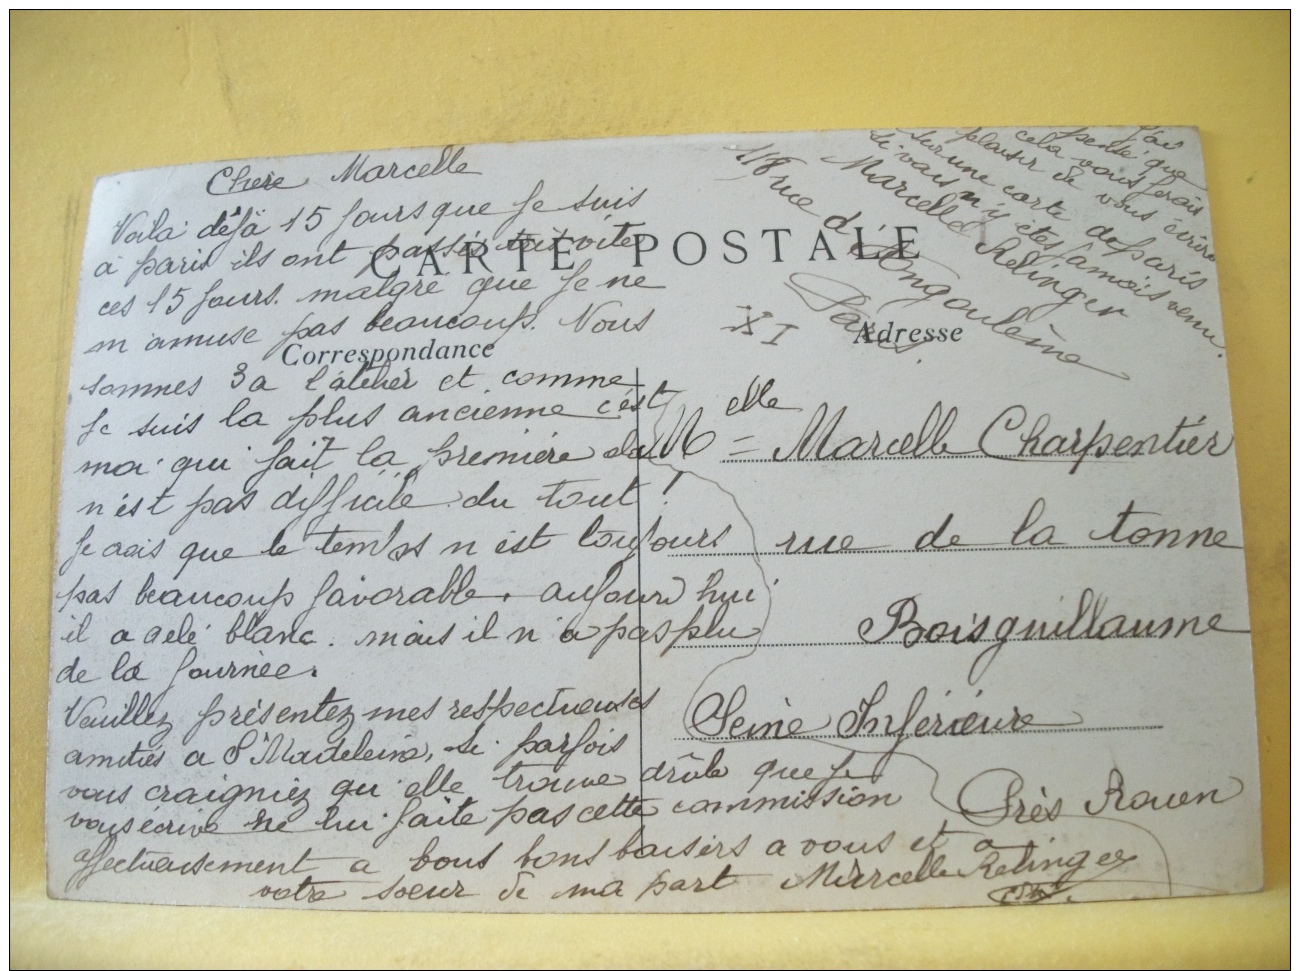 Chère Marcelle
Voilà déjà 15 jours que je suis
à paris ils ont passés vite
ces 15 jours. malgré que je ne
m'amuse pas beaucoup. Nous
sommes 3 a l'atelier et comme
je suis la plus ancienne c'est
moi qui fait la première
n'est pas difficile du tout!
que le temps n'est toujours
pas beaucoup favorable. aujourd'hui
il a gelé blanc. mais il n'a pas plu
de la journée.
Veuillez présentez mes respectueuses
amitiés a Sr Madeleine, si parfois
vous craigniez qu'elle trouve drôle que je
vous ecrive ne lui faite pas cette commission
affectueusement a vous bons baisers a vous et a
votre soeur de ma part Marcelle Relinger
CARTE POSTALE
Correspondance
Adresse
J'ai
pensé que
cela vous ferais
plaisir de vous écrire
sur une carte de paris
si vous n'y êtes jamais venu.
Marcelle Relinger
118 rue d'Angoulème
Paris
XI
Melle = Marcelle Charpentier
rue de la tonne
Boisguillaume
Seine Inférieure
Près Rouen